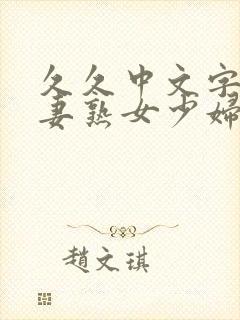 久久中文字
妻熟女少婦
趙文琪